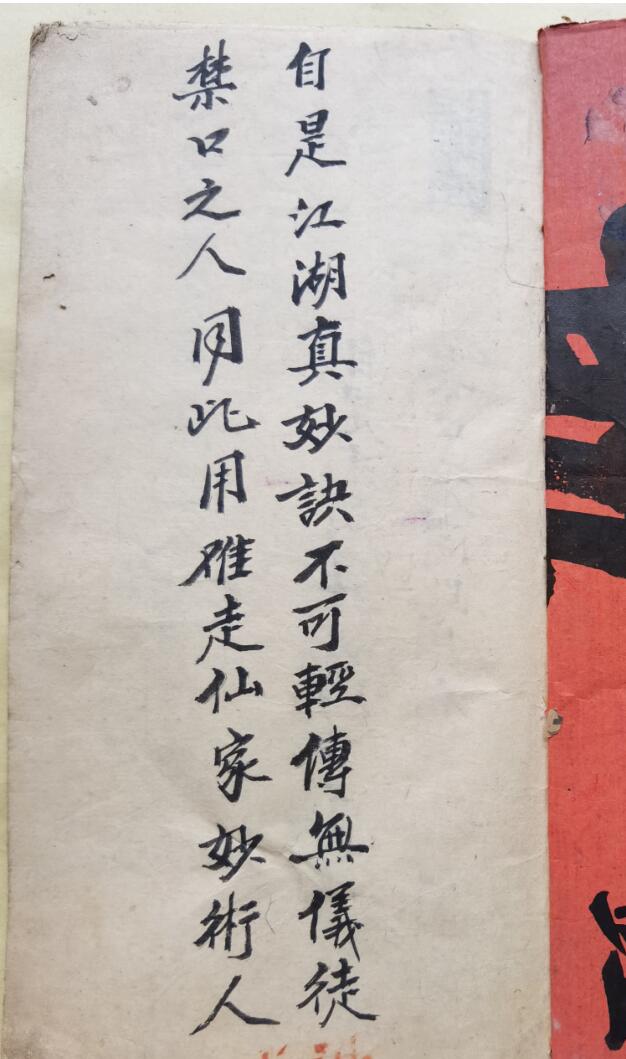 自是江湖真妙訣不可輕傳無儀徒
禁口之人用此用 走仙家妙術人